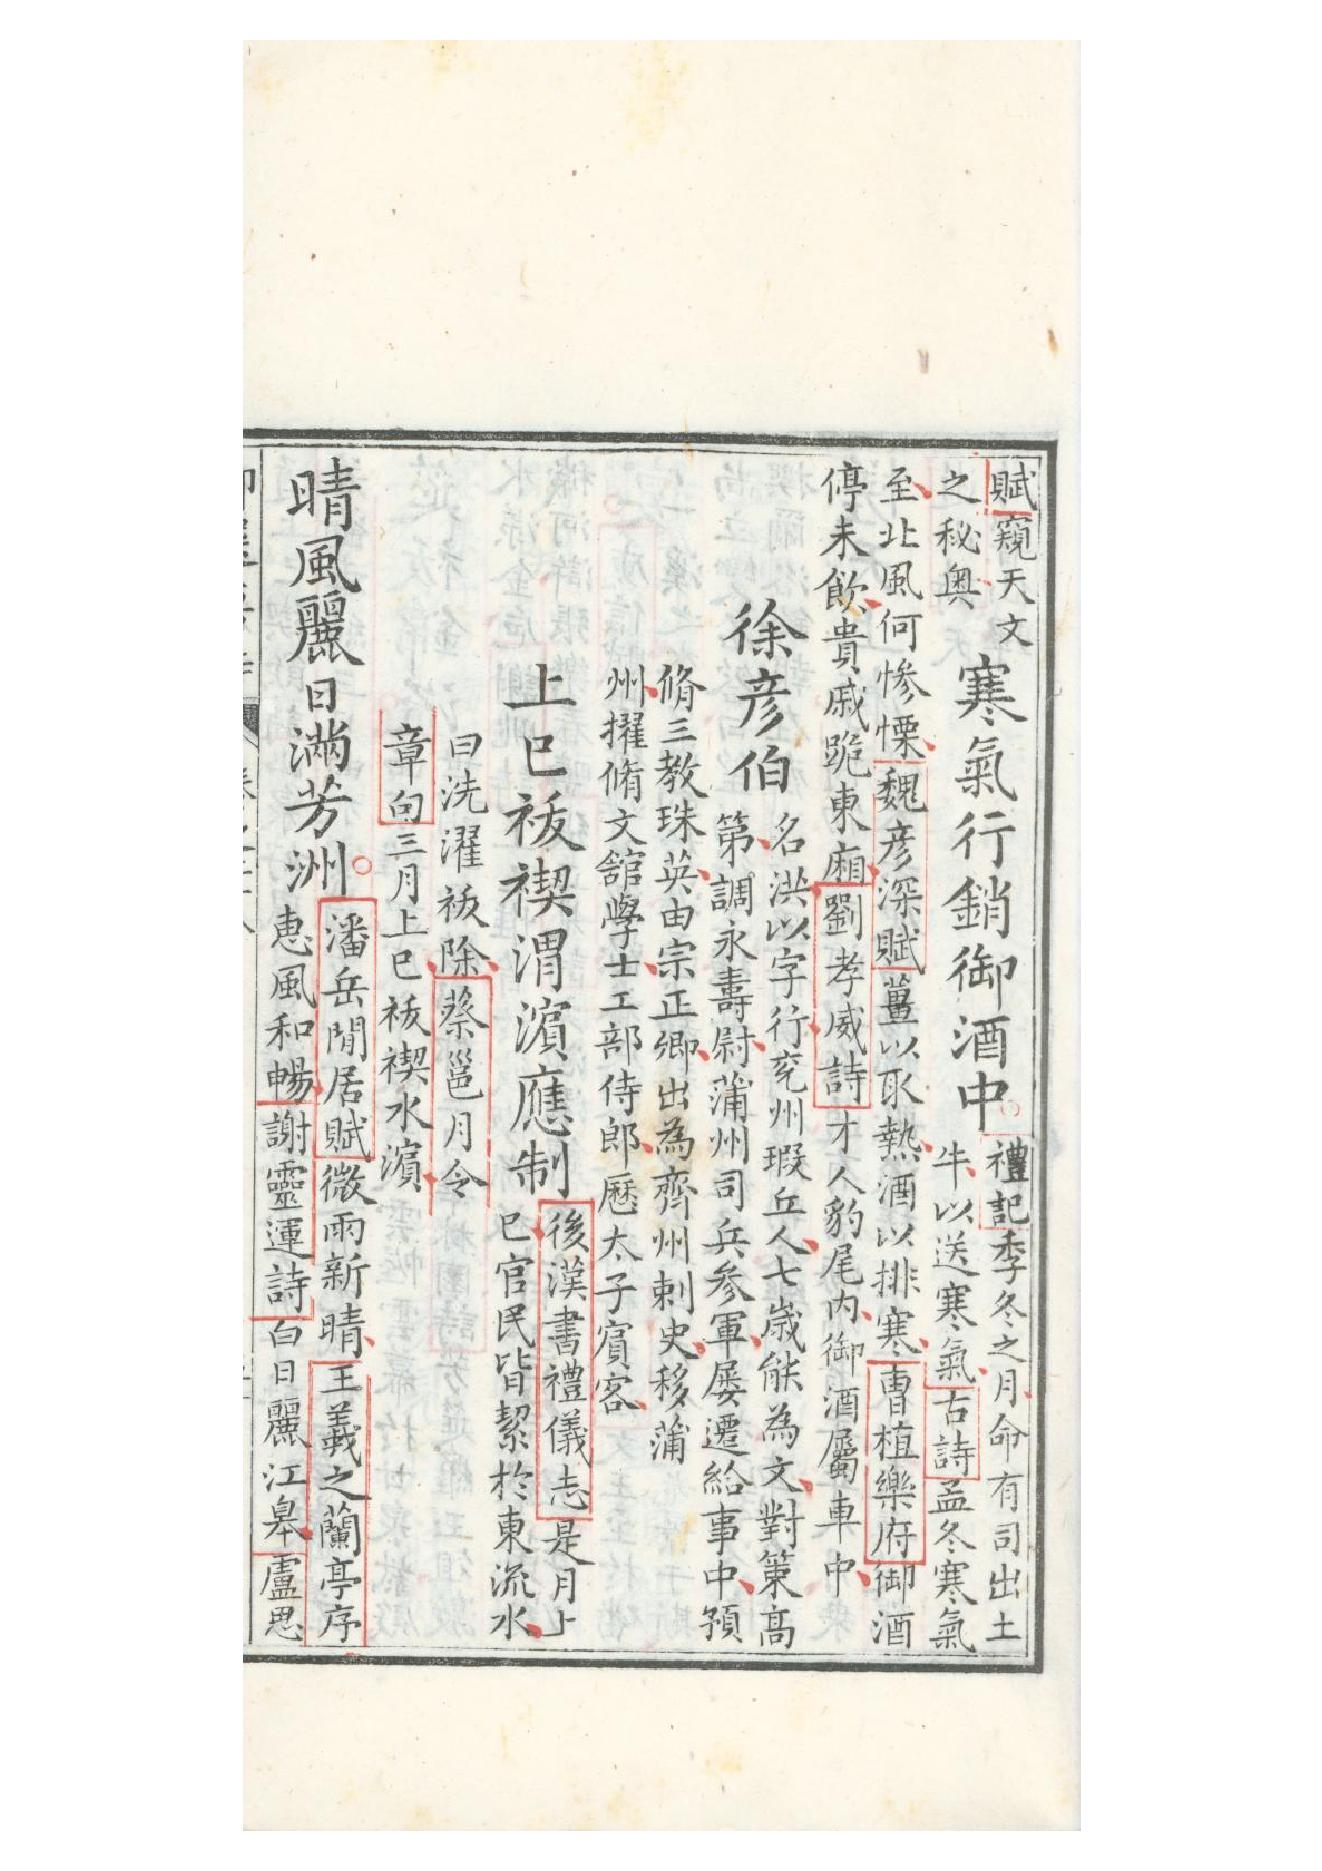 賦窺天文
之秘奥
寒氣行銷御酒中
禮記季冬之月命有司出土
牛以送寒氣古詩孟冬寒氣
至北風何慘慄魏彦深賦薑以取熱酒以排寒曹植樂府御酒
停未飲貴戚跪東廂劉孝威詩才人豹尾内御酒屬車中
徐彦伯
名洪以字行兖州瑕丘人七歲能為文對策高
第調永壽尉蒲州司兵參軍屡遷給事中預
脩三教珠英由宗正卿出為齊州刺史移蒲
州擢脩文舘學士工部侍郎歷太子賔客
上巳祓禊渭濵應制
後漢書禮儀志是月上
巳官民皆絜於東流水
曰洗濯祓除蔡邕月令
章句三月上巳祓禊水濵
晴風麗日滿芳洲
潘岳閒居賦微雨新晴王羲之蘭亭序
恵風和暢謝靈運詩白日麗江臯盧思